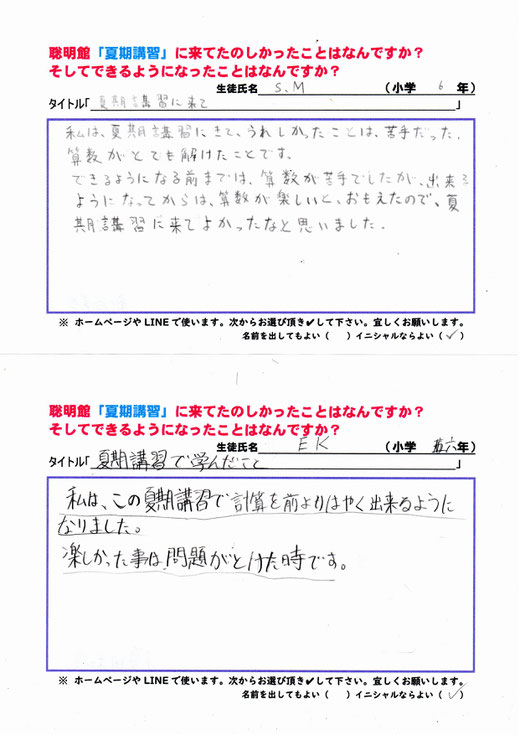 聡明館「夏期講習」に来てたのしかったことはなんですか？
そしてできるようになったことはなんですか？
生徒氏名 S.M （小学 6 年）
タイトル「夏期講習に来て」
私は、夏期講習にきて、うれしかったことは、苦手だった、
算数がとても解けたことです。
できるようになる前までは、算数が苦手でしたが、出来る
ようになってからは、算数が楽しいと、おもえたので、夏
期講習に来てよかったなと思いました。
※ ホームページやLINEで使います。次からお選び頂き✔して下さい。宜しくお願いします。
名前を出してもよい（ ）イニシャルならよい（✓）
聡明館「夏期講習」に来てたのしかったことはなんですか？
そしてできるようになったことはなんですか？
生徒氏名 EK （小学 六年）
タイトル「夏期講習で学んだこと」
私は、この夏期講習で計算を前よりはやく出来るように
なりました。
楽しかった事は問題がとけた時です。
※ ホームページやLINEで使います。次からお選び頂き✔して下さい。宜しくお願いします。
名前を出してもよい（ ）イニシャルならよい（✓）